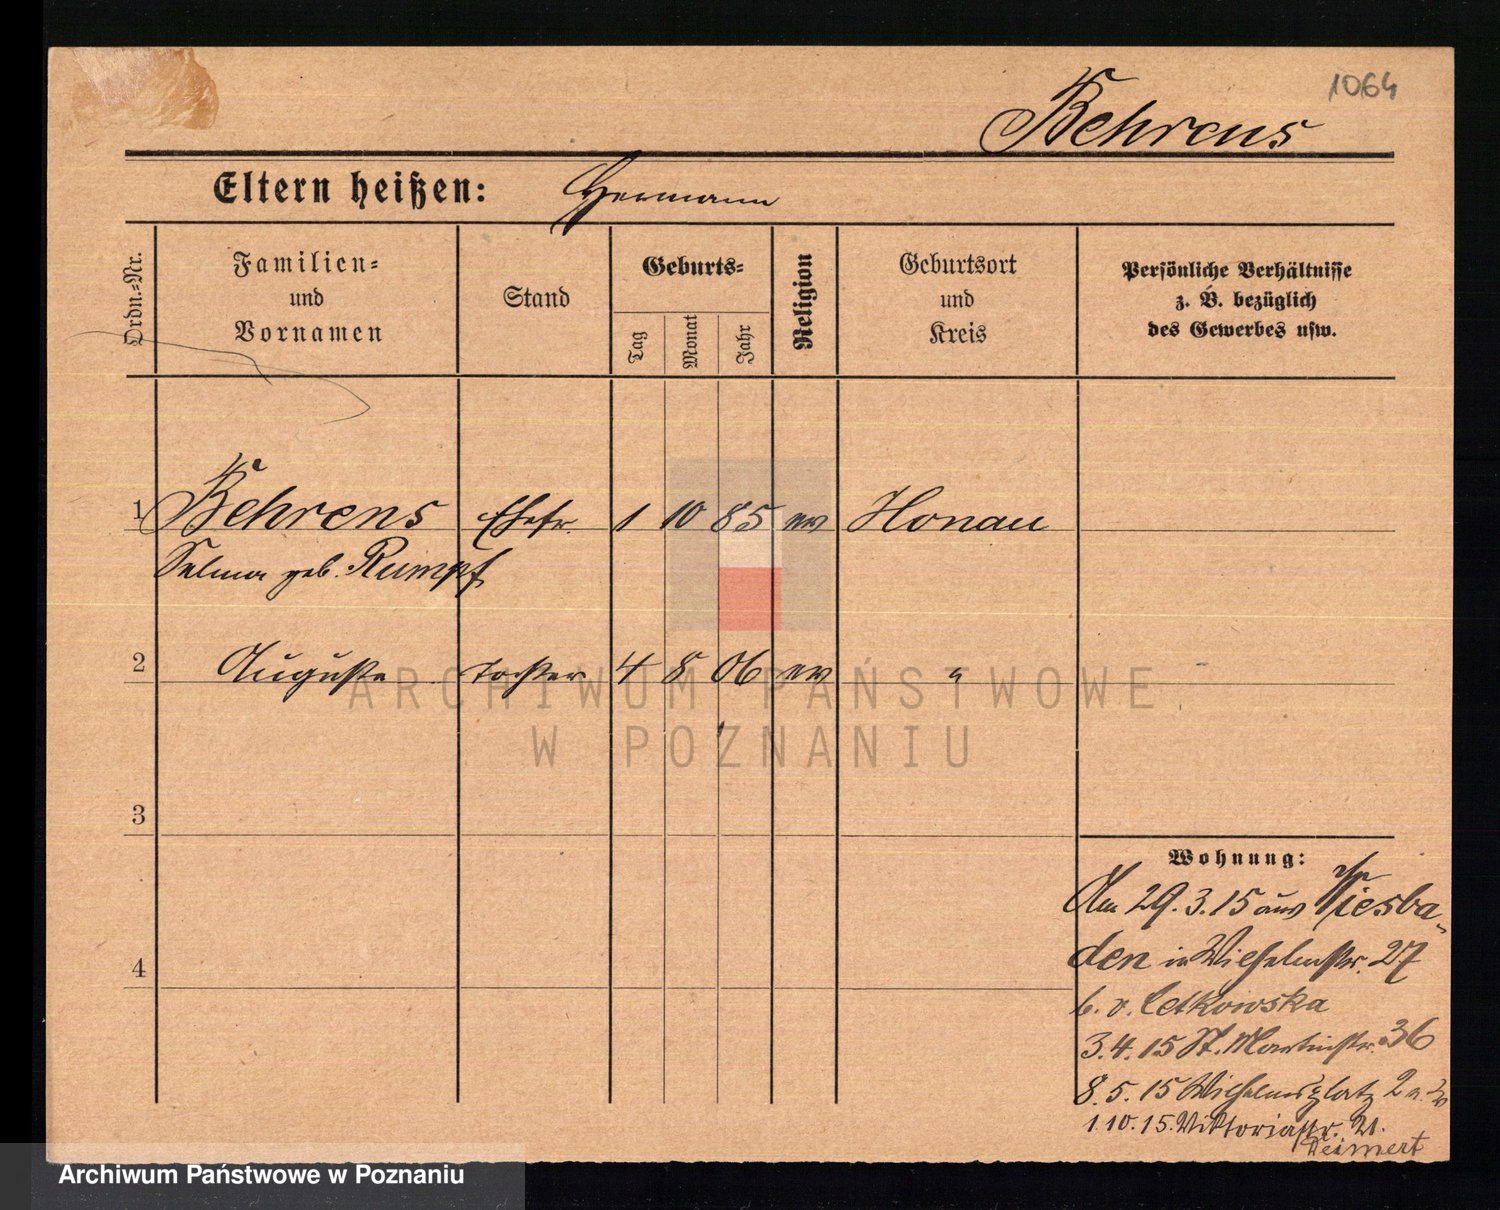 1064
Behrens
Eltern heißen: Hermann
Ordn.-Nr.
Familien-
und
Vornamen
Stand
Geburts-
Tag
Monat
Jahr
Religion
Geburtsort
und
Kreis
Persönliche Verhältnisse
z. B. bezüglich
des Gewerbes usw.
1 Behrens Ehefr. 1 10 85 ev Honau
Selma geb. Rumpf
2 Auguste Tochter 4 8 06 ev "
ARCHIWUM PAŃSTWOWE
W POZNANIU
3
Wohnung:
Am 29.3.15 aus Wiesba-
den in Wilhelmstr. 27
b. v. Cetkowska
4
3.4.15 St. Martinstr. 36
8.5.15 Wilhelmsplatz 2
1.10.15. Viktoriastr. 21.
Archiwum Państwowe w Poznaniu